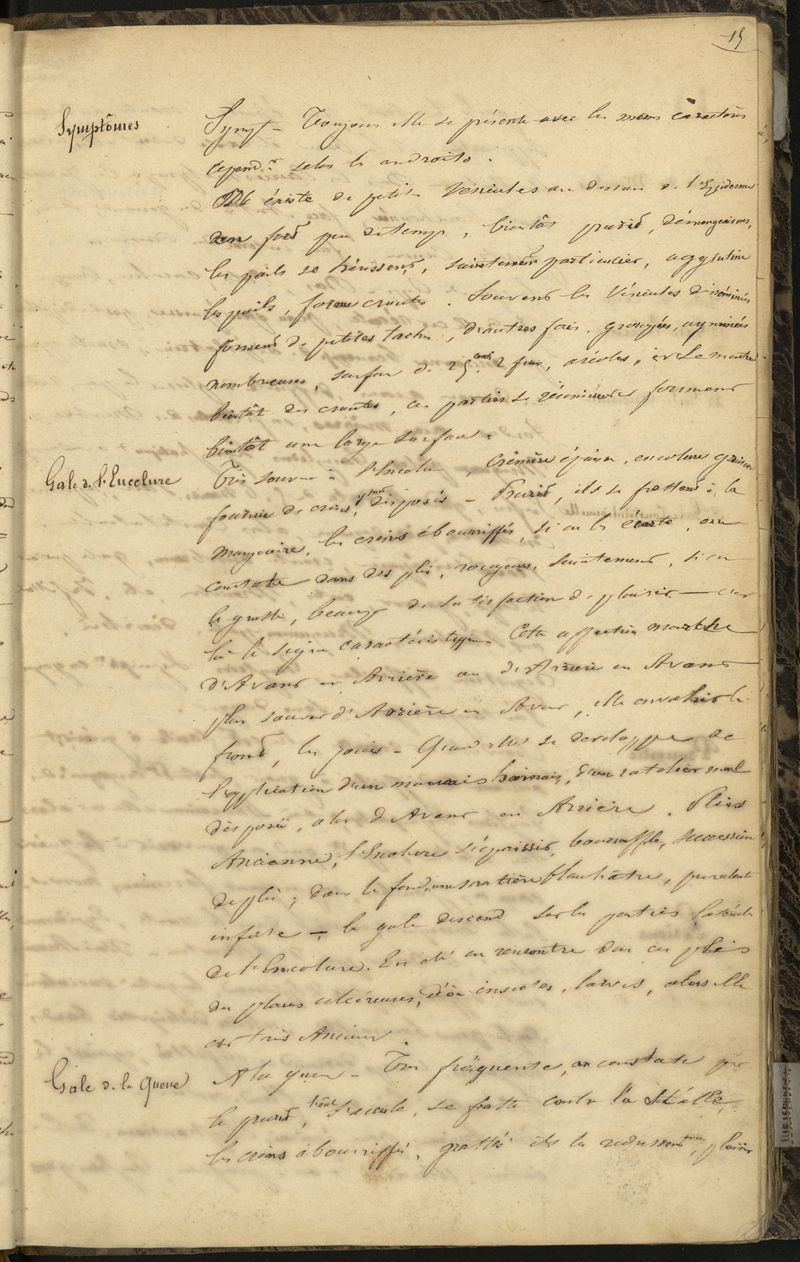 15
Symptômes
Sympt – Toujours elle se présente avec les mêmes caractères
cepend.t selon les endroits.
Il existe de petites vésicules au dessus de l'Epiderme
fond peu de temps, bientôt prurit, démangeaisons,
les poils se hérissent, suintement particulier, agglutine
les poils, forme croutes. Souvent les Vésicules disséminées
forment de petites taches, d'autres fois, groupées, agminées
nombreuses, surface de 25 cent. 2 francs, et se montre
bientôt des croutes, ces parties se réunissent forment
bientôt une large surface.
Gale de l'Encolure
Très souvent à l'Encolure, crinière épaisse, encolure
fournie de crins, disposés – Prurit, ils se frottent à la
mangeoire, les crins ébouriffés, si on les écarte, on
constate dans des plis, rougeurs, suintement, si on
le gratte, beaucoup de satisfaction de plaisir – c'est
là le signe caractéristique. Cette affection marche
d'Avant en Arrière ou d'Arrière en Avant
plus souvent d'Arrière en Avant, elle envahit le
front, les joues – Quand elle se développe de
l'application d'un mauvais harnais, d'un ratelier mal
disposé, alors d'Avant en Arrière. Plus
Ancienne, l'Encolure s'épaissit, boursouffle, succession
de plis, dans le fond, une matière blanchâtre, purulente
infecte – la gale descend sur les parties latérales
de l'Encolure. En été on rencontre dans ces plis
des plaies ulcéreuses, d'où insectes, larves, alors elle
est très Ancienne.
Gale de la Queue
A la queue – Très fréquente, on constate que
le prurit, s'accule, se frotte contre la Stalle,
les crins ébouriffés, grattés ils la redressent, plaisir